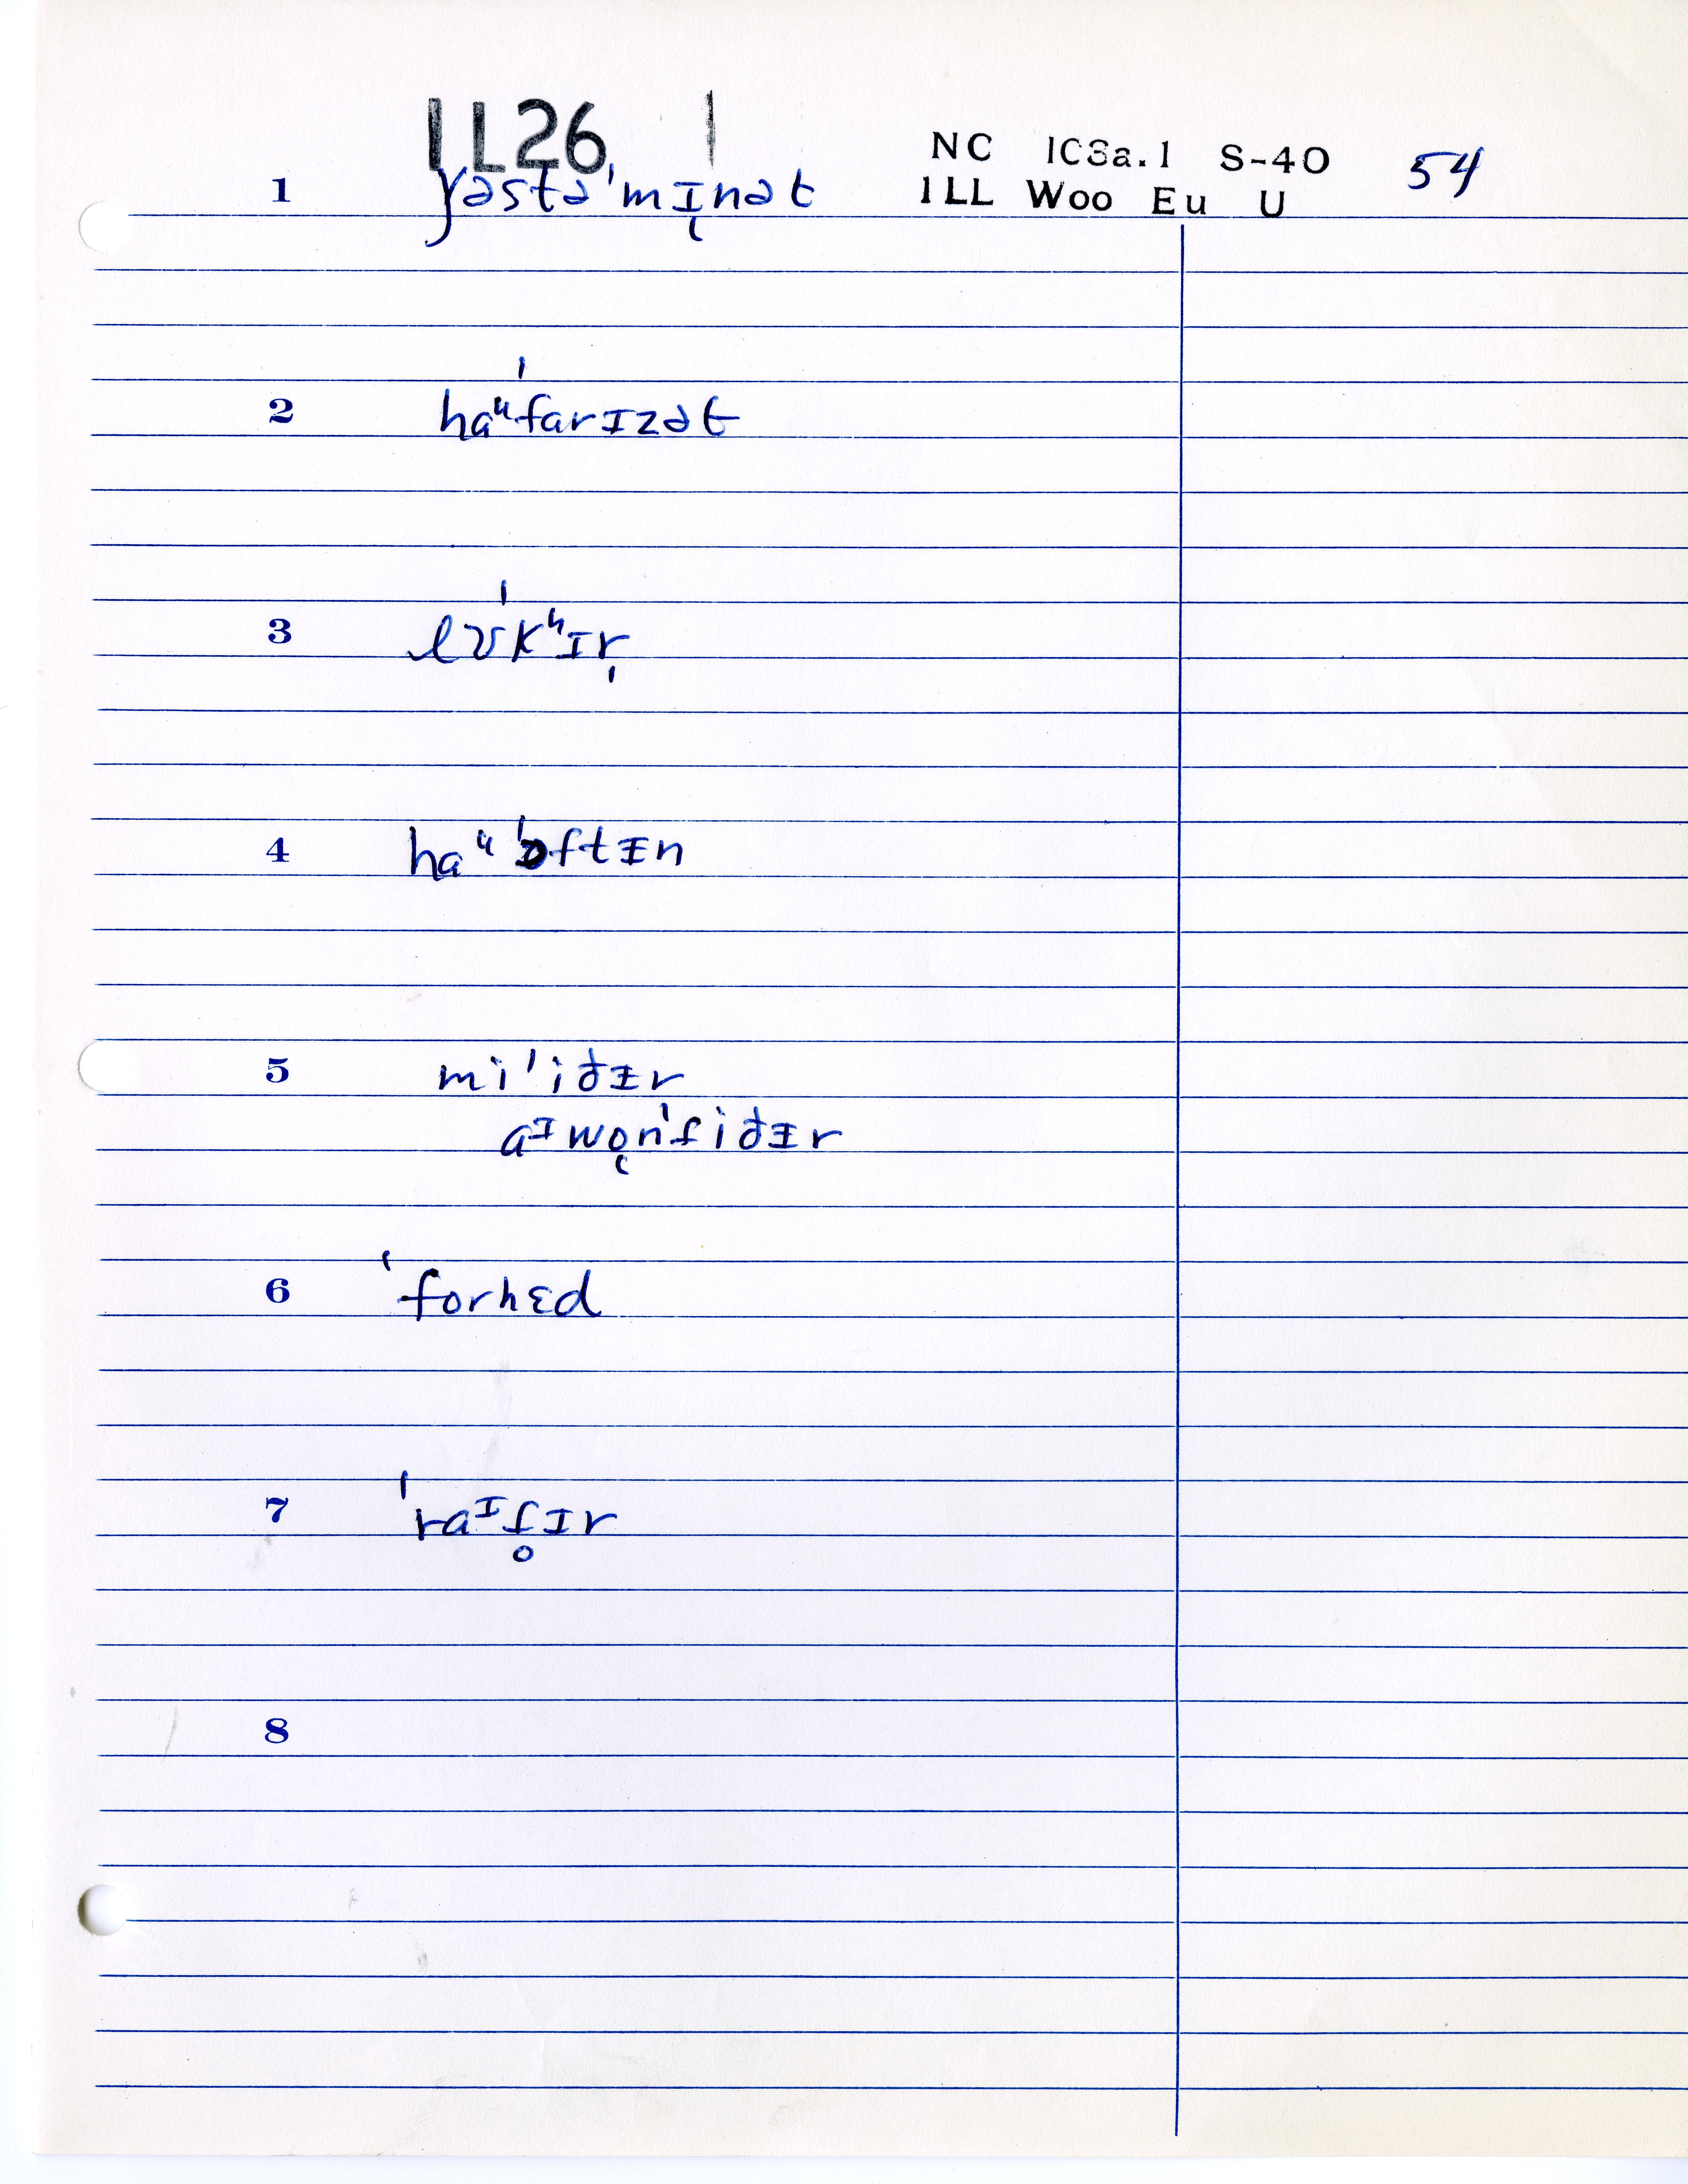 IL26 1
NC IC8a.1 S-40 54
ILL Woo Eu U
1 ɣəstə'mɪ̨nət
2 haᵘ'farɪzət
3 'lʊkʰɪr̩
4 haᵘ'ɔftɨn
5 mi'ið̵ɨr
aᴵwo̜n'fið̵ɨr
6 'forhɛd
7 'raᴵf̥ɪr
8